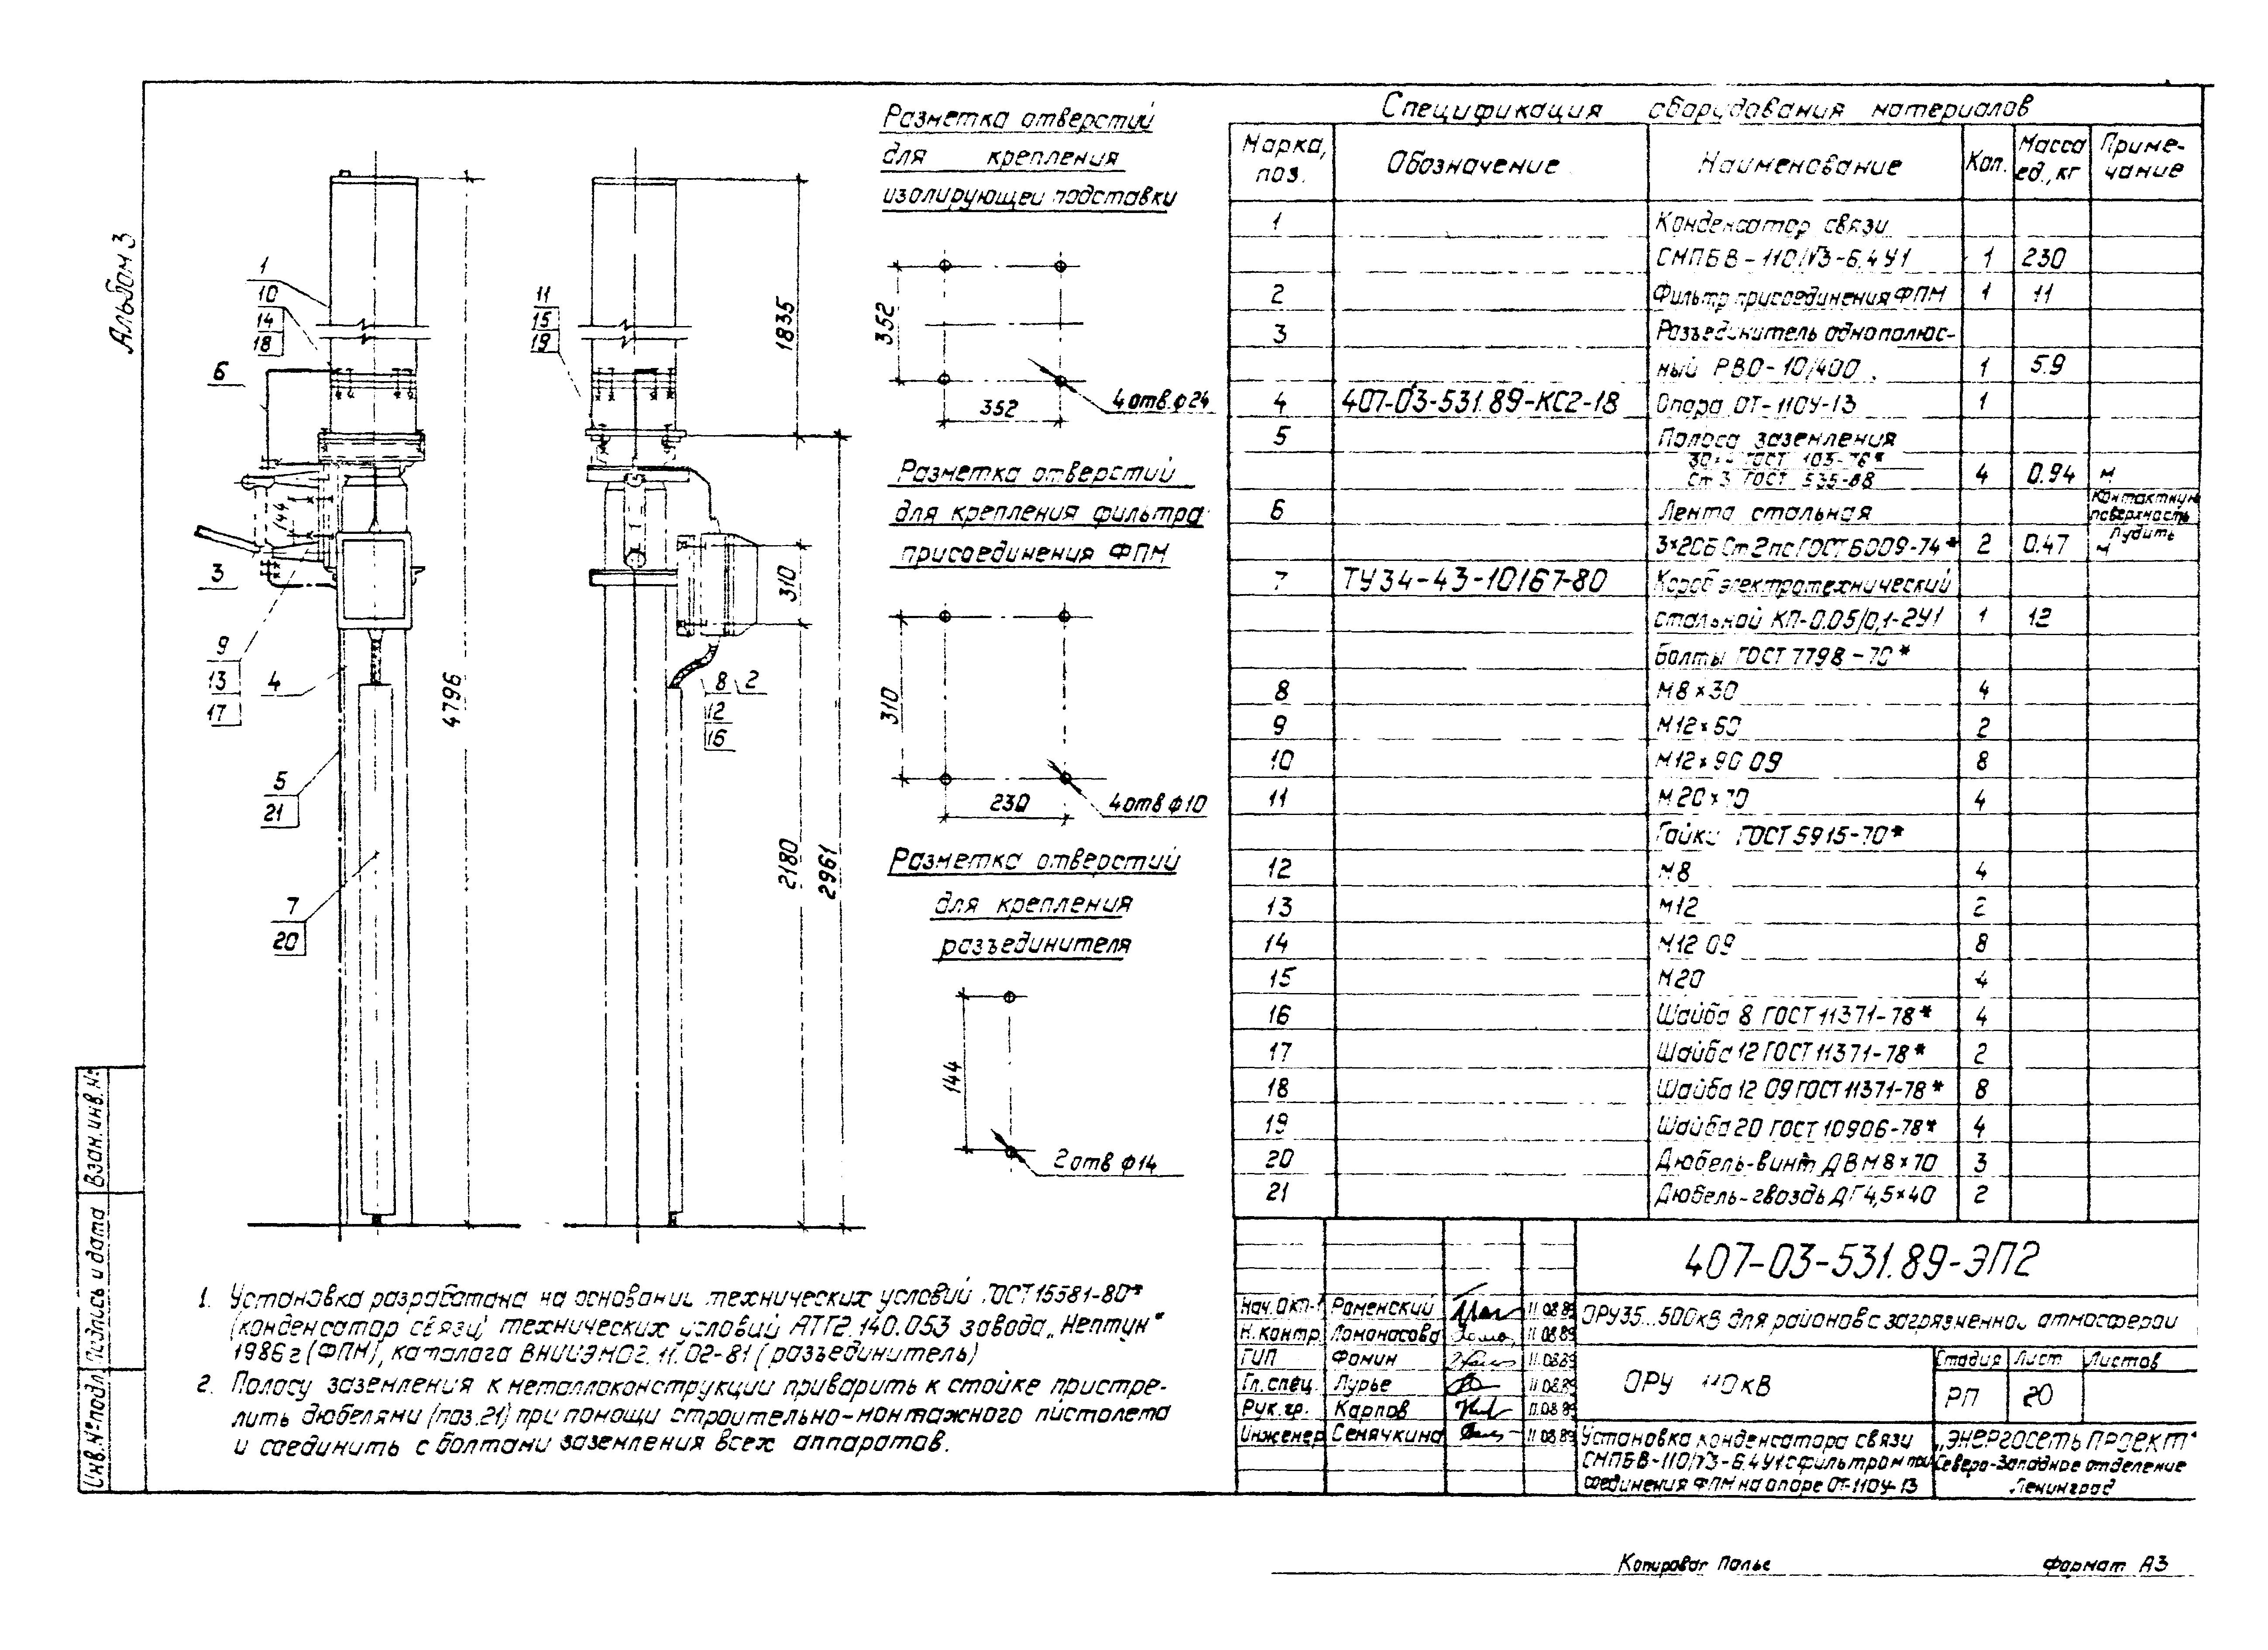 Альбом 3
Разметка отверстий
для крепления
изолирующей подставки
352
352
4 отв. ф24
Разметка отверстий
для крепления фильтра
присоединения ФПМ
310
230
4 отв ф10
Разметка отверстий
для крепления
разъединителя
144
2 отв ф14
1
10
14
18
6
144
3
9
13
17
4
5
21
7
20
4796
11
15
19
1835
310
8 2
12
16
2180
2961
Спецификация оборудования материалов
Марка, поз. Обозначение Наименование Кол. Масса ед., кг Приме-чание
1 Конденсатор связи
СМПБВ-110/√3-6.4У1 1 230
2 Фильтр присоединения ФПМ 1 11
3 Разъединитель однополюс-
ный РВО-10/400 1 5.9
4 407-03-531.89-КС2-18 Опора ОТ-110У-13 1
5 Полоса заземления
30×4 ГОСТ 103-76*
Ст 3 ГОСТ 535-88 4 0.94 м
6 Лента стальная Контактную поверхность лудить
3×20Б Ст 2 пс ГОСТ 6009-74* 2 0.47 м
7 ТУ34-43-10167-80 Короб электротехнический
стальной КП-0.05/0,1-2У1 1 12
Болты ГОСТ 7798-70*
8 М8×30 4
9 М12×60 2
10 М12×90 09 8
11 М20×70 4
Гайки ГОСТ 5915-70*
12 М8 4
13 М12 2
14 М12 09 8
15 М20 4
16 Шайба 8 ГОСТ 11371-78* 4
17 Шайба 12 ГОСТ 11371-78* 2
18 Шайба 12 09 ГОСТ 11371-78* 8
19 Шайба 20 ГОСТ 10906-78* 4
20 Дюбель-винт ДВМ8×70 3
21 Дюбель-гвоздь ДГ4,5×40 2
1. Установка разработана на основании технических условий ГОСТ 15581-80*
(конденсатор связи) технических условий АТГ2.140.053 завода „Нептун“
1986г (ФПМ), каталога ВНИИЭМ 02.11.02-81 (разъединитель)
2. Полосу заземления к металлоконструкции приварить к стойке пристре-
лить дюбелями (поз.21) при помощи строительно-монтажного пистолета
и соединить с болтами заземления всех аппаратов.
Взам.инв.№
Подпись и дата
Инв.№подл
407-03-531.89-ЭП2
ОРУ35...500кВ для районов с загрязненной атмосферой
Нач.ОКП-1 Роменский 11.08.89
Н.контр. Ломоносова 11.08.89
ГИП Фомин 11.08.89
Гл.спец. Лурье 11.08.89
Рук.гр. Карпов 11.08.89
Инженер Семячкина 11.08.89
ОРУ 110кВ
Стадия Лист Листов
РП 20
Установка конденсатора связи
СМПБВ-110/√3-6.4У1 с фильтром при-
соединения ФПМ на опоре ОТ-110У-13
„ЭНЕРГОСЕТЬПРОЕКТ“
Северо-Западное отделение
Ленинград
Копировал Полье
Формат А3